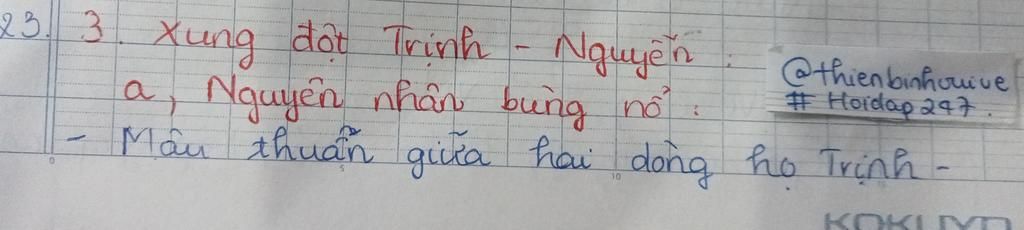 23. 3. Xung đột Trịnh - Nguyễn:
@thienbinhouive
# Hoidap 247.
a, Nguyên nhân bùng nổ:
- Mâu thuẫn giữa hai dòng họ Trịnh -
KOKUYO